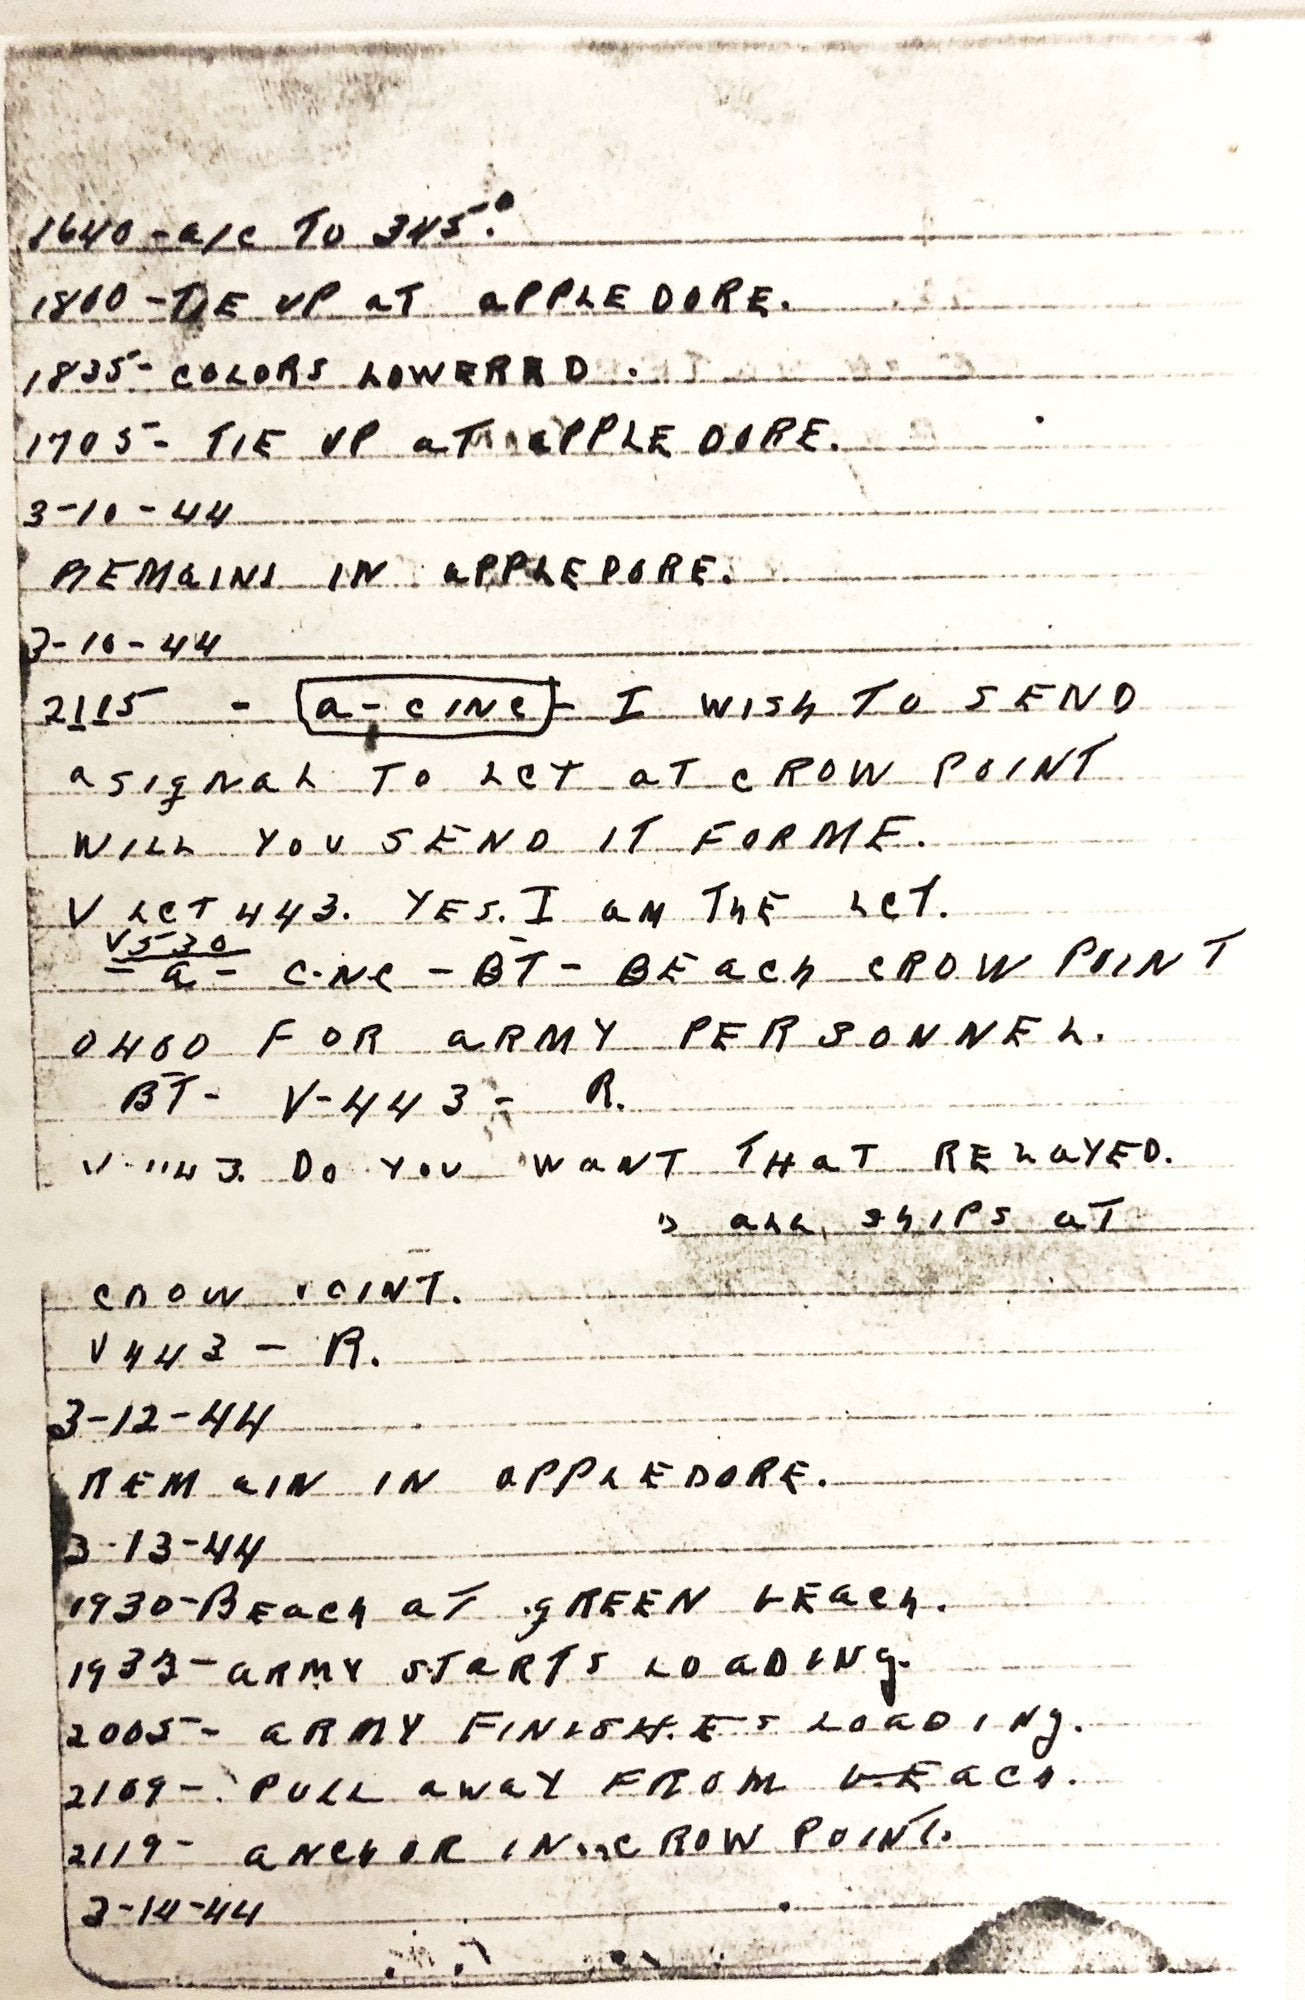 1640-a/c TO 345°.
1800-TIE UP aT aPPLEDORE.
1835-COLORS LOWERED.
1705-TIE UP aT aPPLEDORE.
3-10-44
REMaINS IN aPPLEDORE.
3-10-44
2115 - a-CINC - I WISh TO SEND
a SIgNaL TO LCT aT CROW POINT
WILL YOU SEND IT FOR ME.
V LCT 443. YES. I aM ThE LCT.
V530
- a - CINC - BT - BEach CROW POINT
0400 FOR aRMY PERSONNEL.
BT- V-443- R.
V-443. DO YOU WaNT THaT RELaYED.
aLL ShIPS aT
CROW POINT.
V443 - R.
3-12-44
REMaIN IN aPPLEDORE.
3-13-44
1930-BEach aT gREEN bEach.
1933-aRMY STaRTS LOaDINg.
2005- aRMY FINISHES LOaDINg.
2109- PULL aWaY FROM bEach.
2119- aNchOR IN CROW POINT.
3-14-44